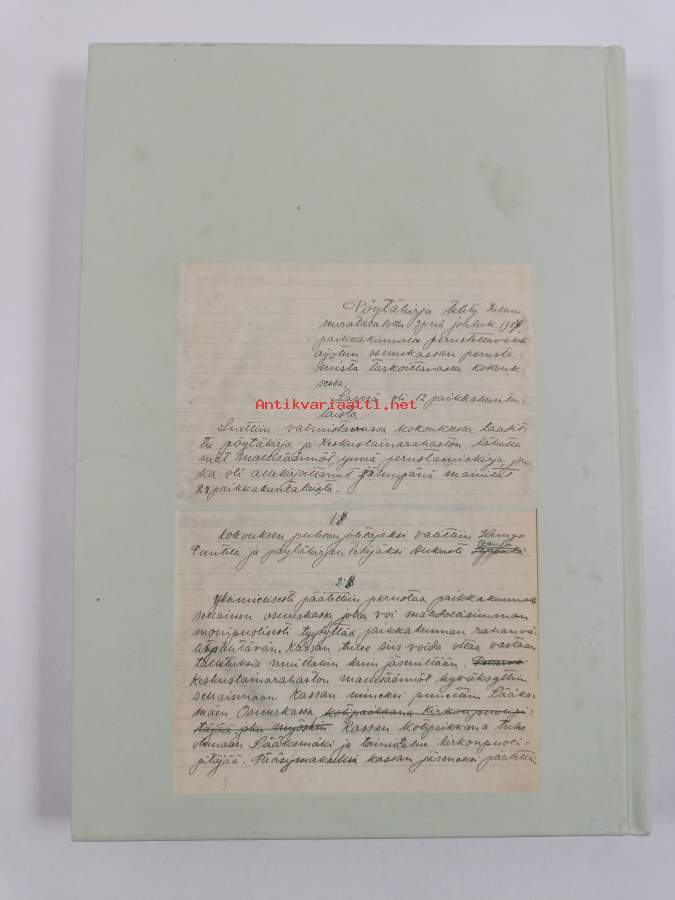 Pöytäkirja tehty
seuratalolla 9 pnä 
paikkakunnalle perustettavaksi
aijotun osuuskassan perusta-
mista tarkoittavassa kokouk-
sessa.
Läsnä oli 12 paikkakunta-
laista.
Antikvariaatti.net
Luettiin valmistavassa kokouksessa laadit-
tu pöytäkirja ja Keskuslainarahaston lähettä-
mät mallisäännöt ynnä perustamiskirja jon-
ka oli allekirjoittanut mainitut
22 paikkakuntalaista.
1:§
Kokouksen puheenjohtajaksi valittiin
Puntila ja pöytäkirjan tekijäksi Aukusti
2:§
Yksimielisesti päätettiin perustaa paikkakunnalle
sellainen osuuskassa joka voi mahdollisimman
monipuolisesti tyydyttää paikkakunnan rahanvä-
litystehtävän. Kassan tulee siis voida ottaa vastaan
talletuksia muiltakin kuin jäseniltään.
Keskuslainarahaston mallisäännöt hyväksyttiin
sellaisenaan. Kassan nimeksi pantiin Sääks-
mäen Osuuskassa kotipaikkana Kirkonpuolipi-
täjää joka myöskin Kassan kotipaikkana tulee
olemaan Sääksmäki ja toimialue kirkonpuoli-
pitäjää. Pääsymaksuksi kassan jäseneksi päätettiin